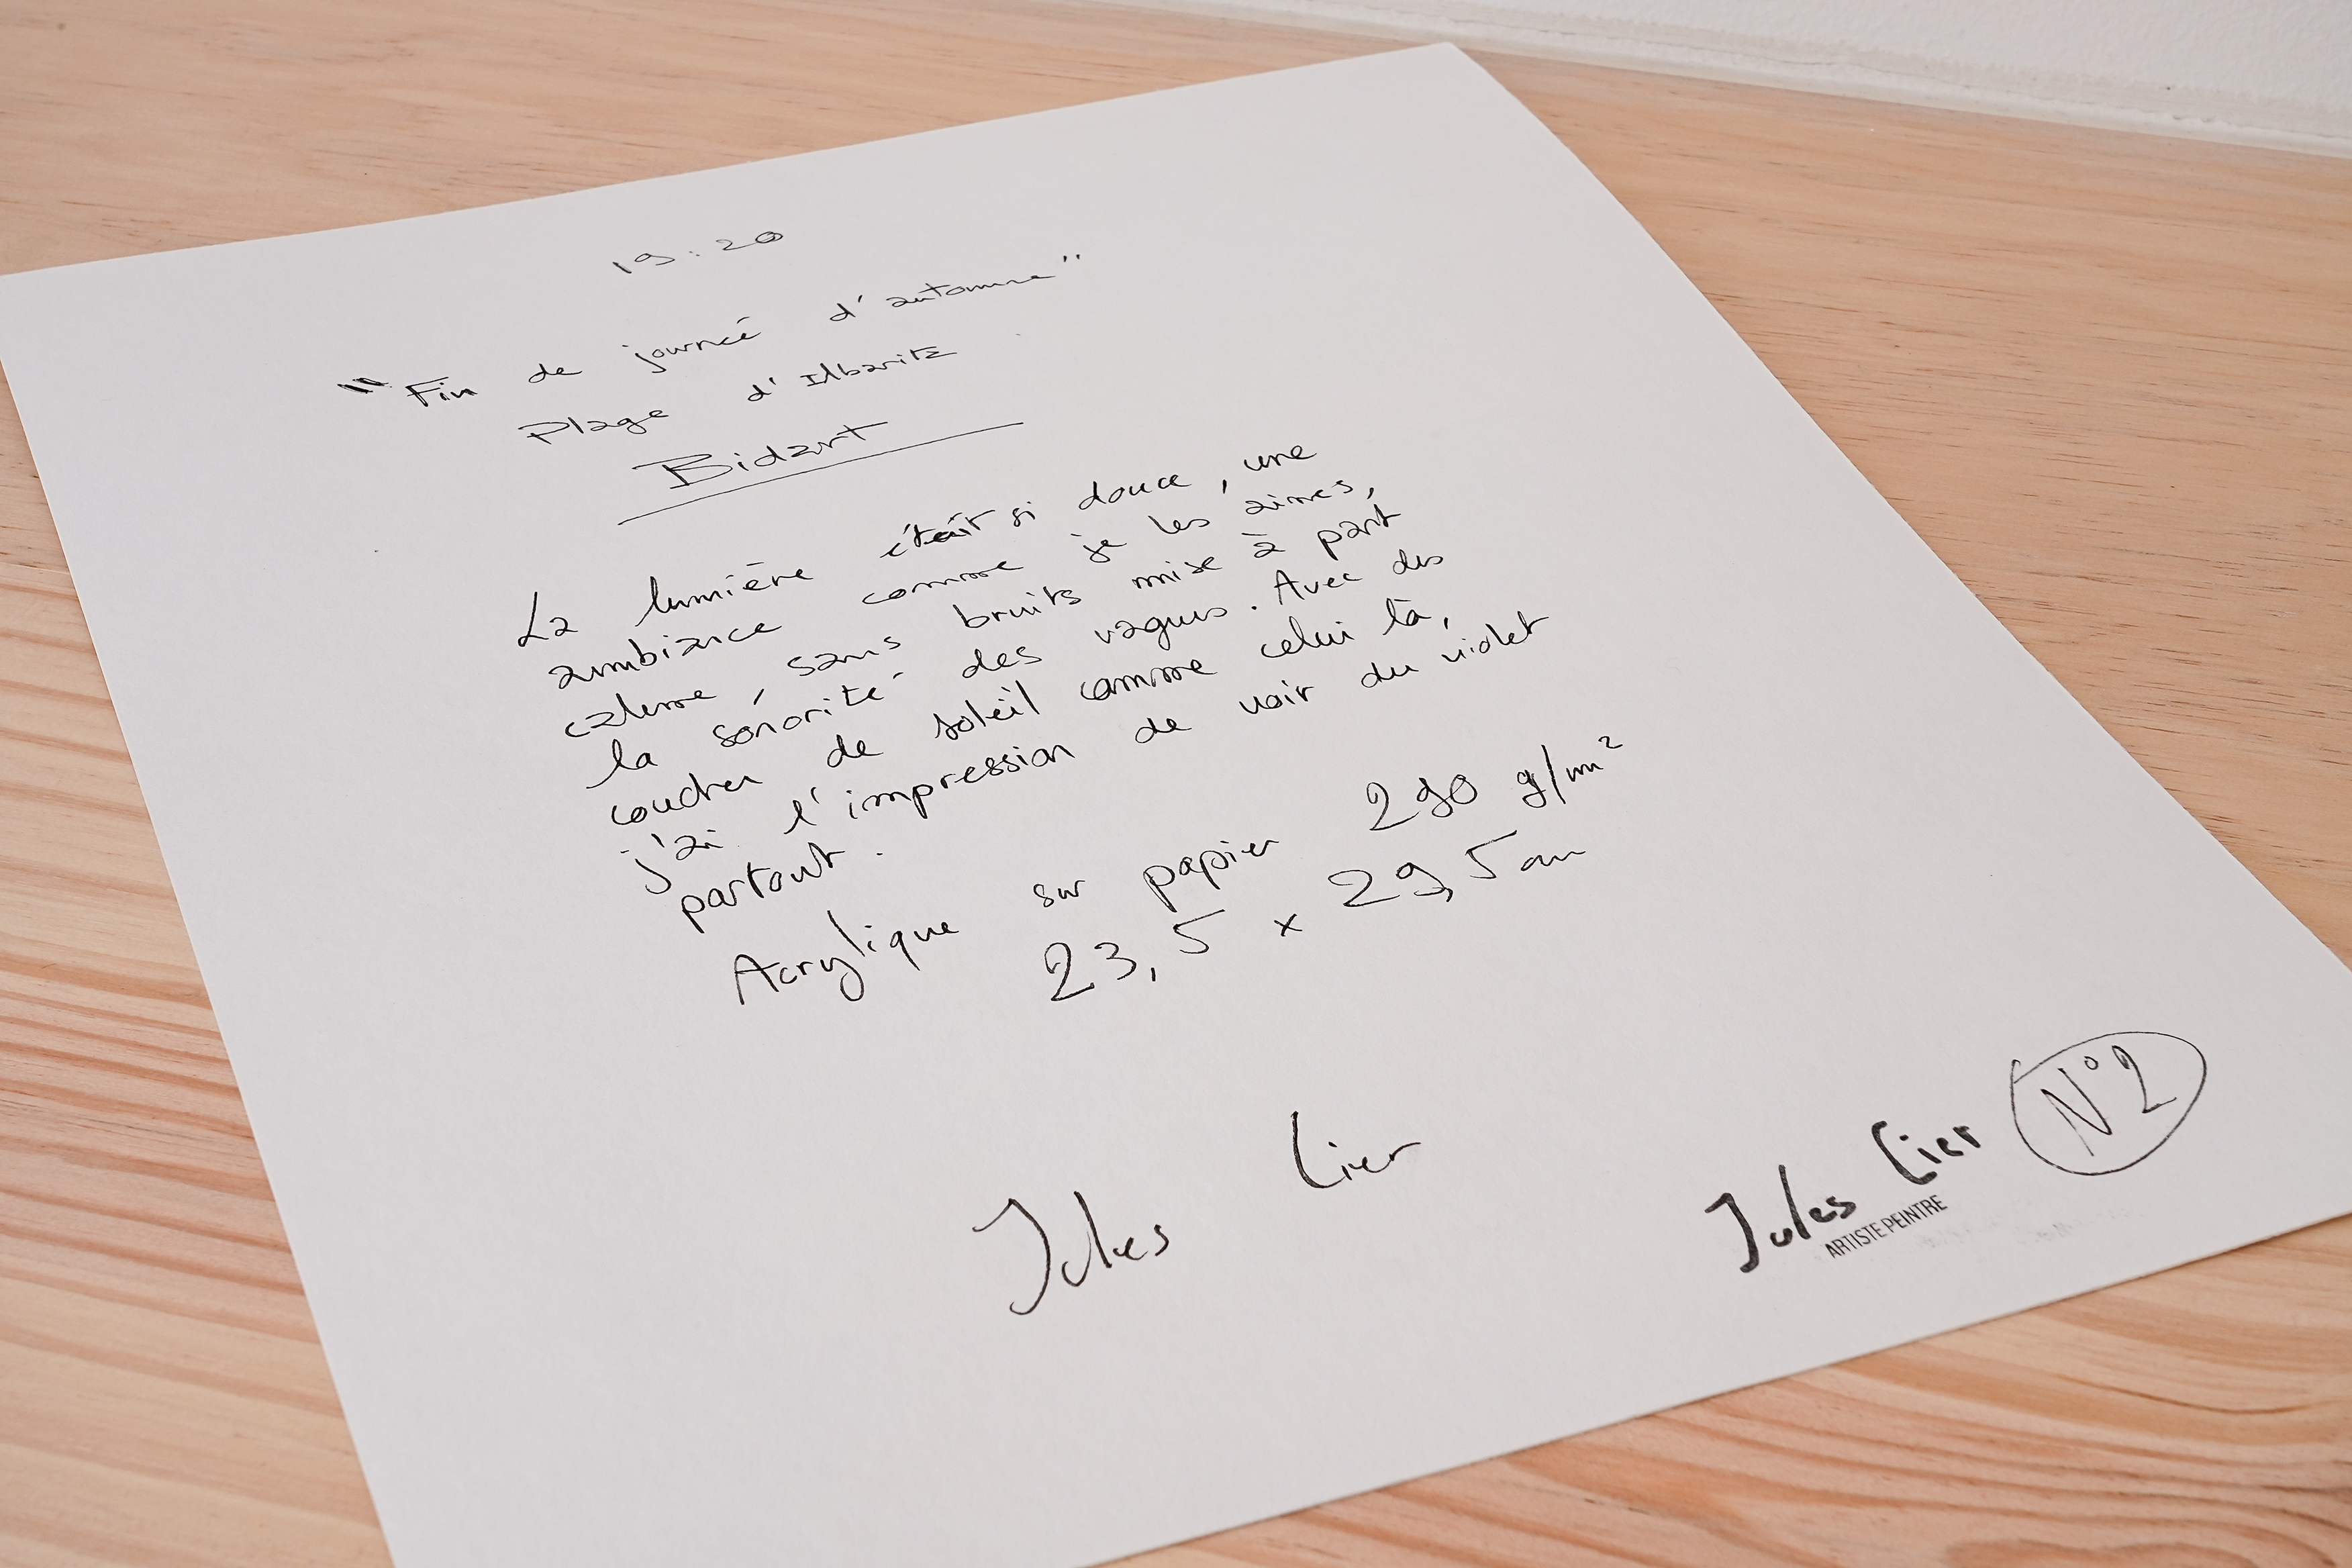 19:20
"Fin de journeé d'automne"
Plage d'Ilbaritz
Bidart
La lumière était si douce, une
ambiance comme je les aimes,
calme, sans bruits mise à part
la sonorité des vagues. Avec des
coucher de soleil comme celui là,
j'ai l'impression de voir du violet
partout.
Acrylique sur papier 290 g/m²
23,5 x 29,5 cm
Jules Lier
Jules Lier N°2
ARTISTE PEINTRE